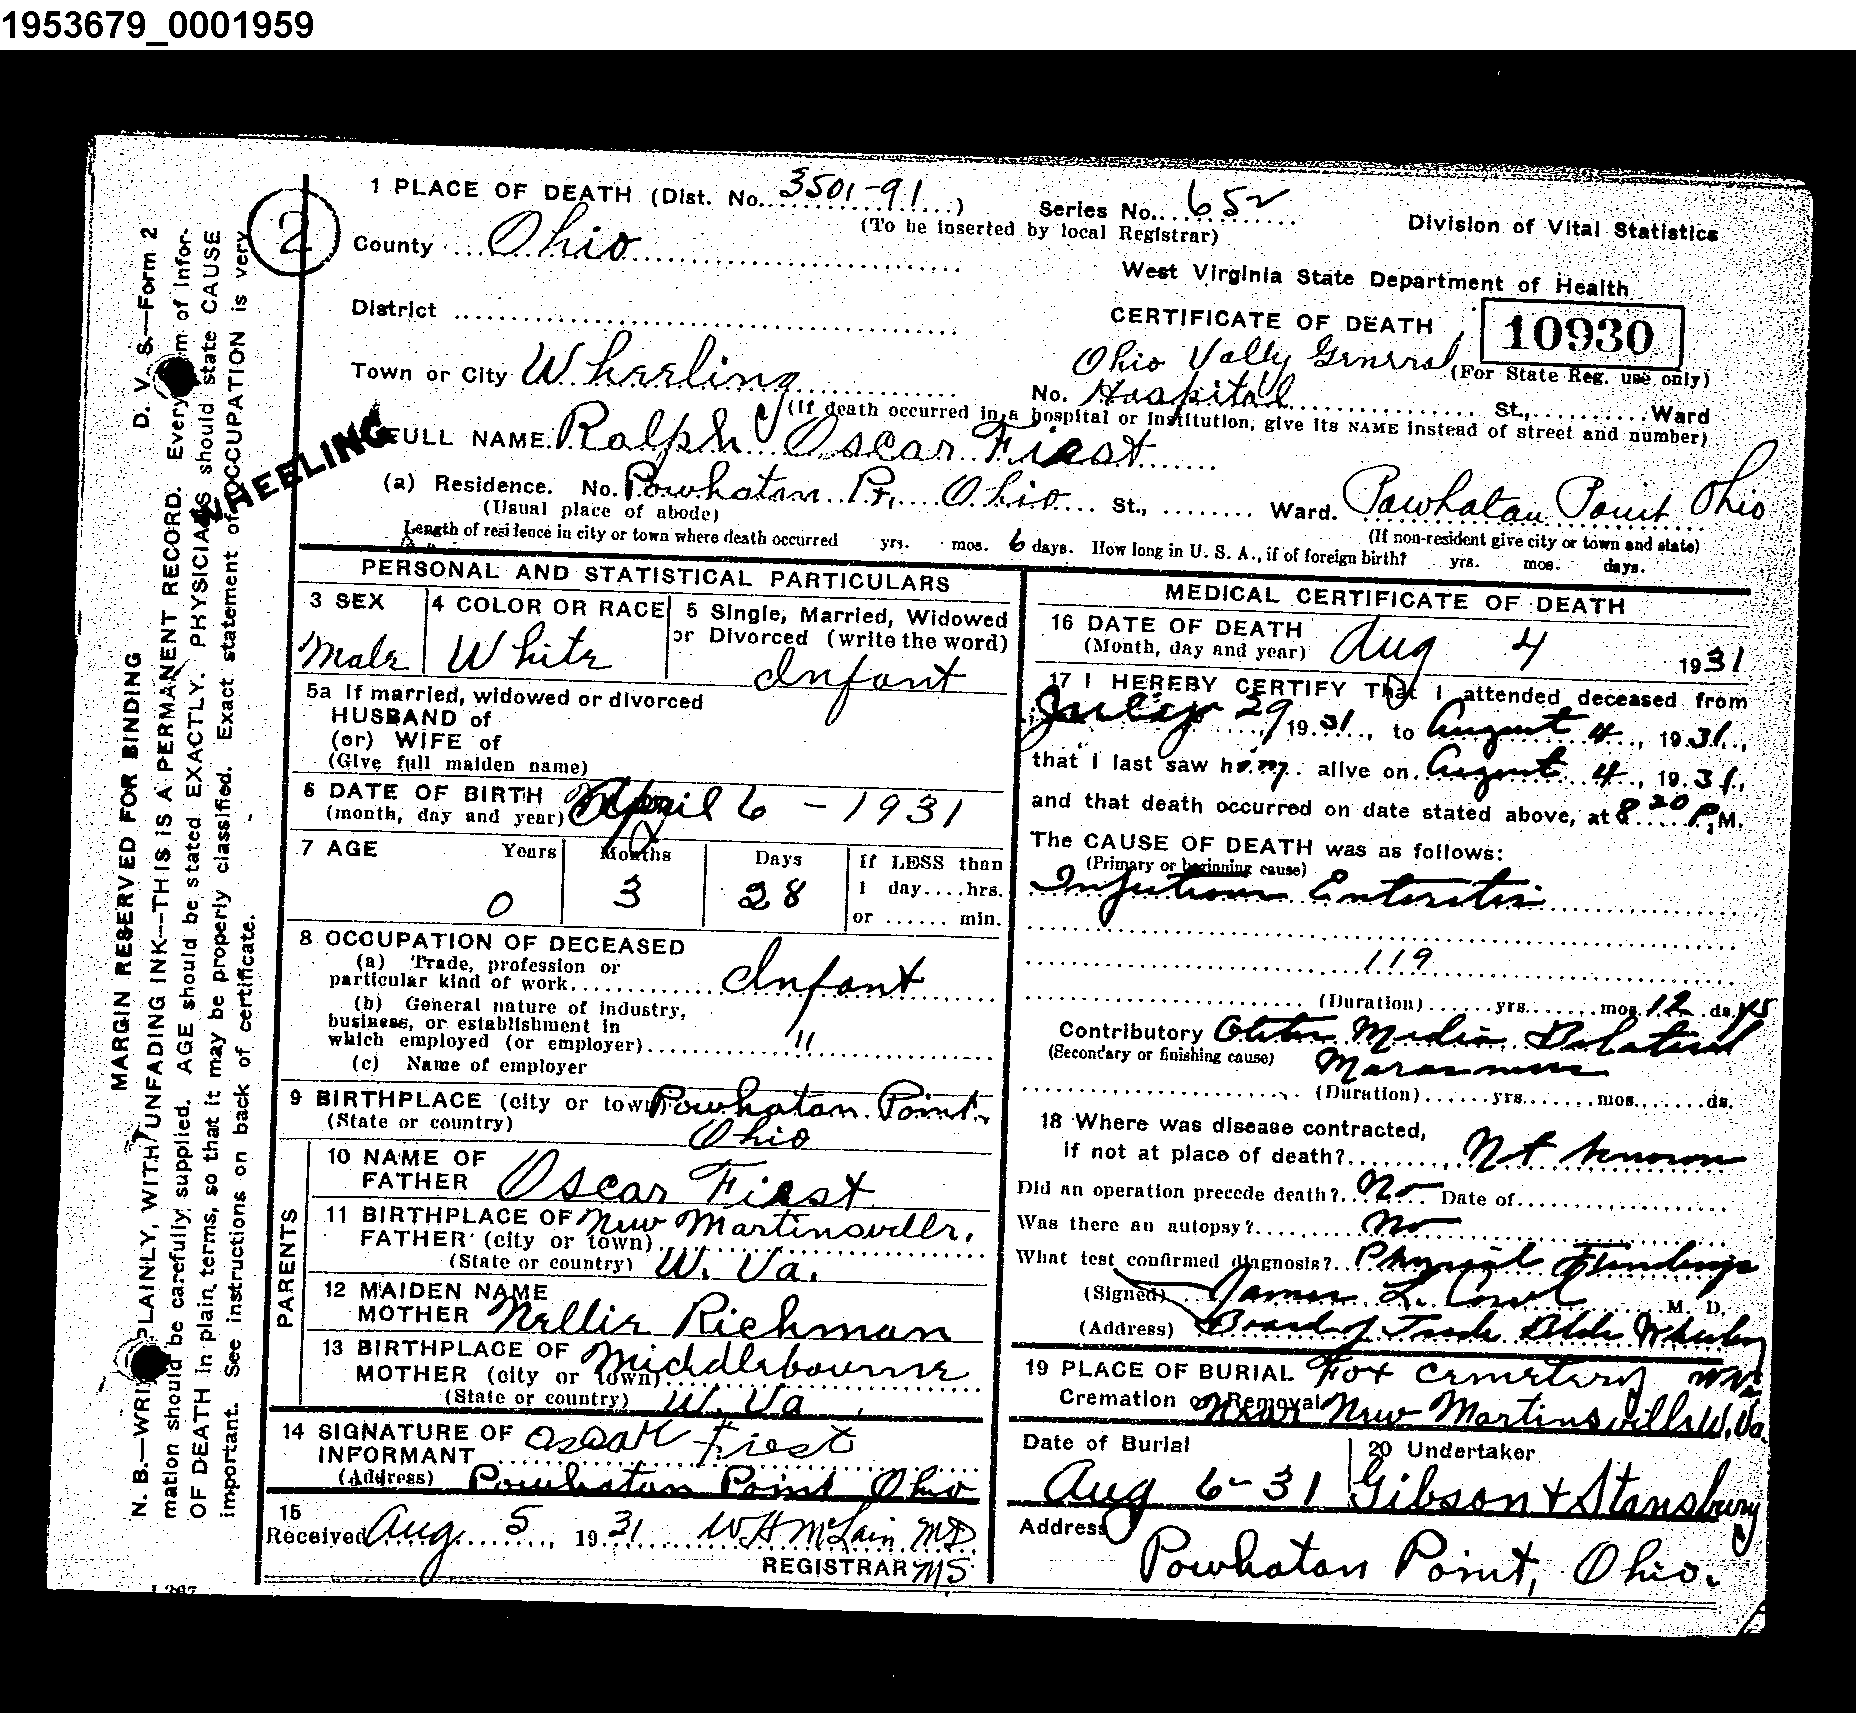 1953679_0001959
1 PLACE OF DEATH (Dist. No. 3501-91) Series No. 652 Division of Vital Statistics
(To be inserted by local Registrar)
2
County Ohio
West Virginia State Department of Health
District
CERTIFICATE OF DEATH 10930
Town or City Wheeling Ohio Vally General (For State Reg. use only)
No. Hospital St., Ward
(If death occurred in a hospital or institution, give its NAME instead of street and number)
WHEELING
FULL NAME Ralph Oscar Fiest
(a) Residence. No. Powhatan Pt. Ohio St., Ward. Powhatan Point Ohio
(Usual place of abode) (If non-resident give city or town and state)
Length of residence in city or town where death occurred yrs. mos. 6 days. How long in U. S. A., if of foreign birth? yrs. mos. days.
PERSONAL AND STATISTICAL PARTICULARS
3 SEX 4 COLOR OR RACE 5 Single, Married, Widowed
or Divorced (write the word)
Male White Infant
5a If married, widowed or divorced
HUSBAND of
(or) WIFE of
(Give full maiden name)
6 DATE OF BIRTH April 6 - 1931
(month, day and year)
7 AGE Years Months Days If LESS than
1 day....hrs.
or ...... min.
0 3 28
8 OCCUPATION OF DECEASED
(a) Trade, profession or
particular kind of work Infant
(b) General nature of industry,
business, or establishment in
which employed (or employer) "
(c) Name of employer
9 BIRTHPLACE (city or town) Powhatan Point,
(State or country) Ohio
PARENTS
10 NAME OF
FATHER Oscar Fiest
11 BIRTHPLACE OF New Martinsville,
FATHER (city or town)
(State or country) W. Va.
12 MAIDEN NAME
MOTHER Nellie Richman
13 BIRTHPLACE OF Middlebourne
MOTHER (city or town)
(State or country) W. Va
14 SIGNATURE OF
INFORMANT Oscar Fiest
(Address) Powhatan Point Ohio
15
Received Aug. 5, 1931 W H McLain MD
REGISTRAR MS
MEDICAL CERTIFICATE OF DEATH
16 DATE OF DEATH
(Month, day and year) Aug 4 1931
17 I HEREBY CERTIFY That I attended deceased from
July 29, 1931, to August 4, 1931,
that I last saw him alive on August 4, 1931,
and that death occurred on date stated above, at 8 20 P.M.
The CAUSE OF DEATH was as follows:
(Primary or beginning cause)
Infectious Enteritis
119
(Duration) yrs. mos. 12 ds.
Contributory Otitis Media Bilateral
(Secondary or finishing cause) Marasmus
(Duration) yrs. mos. ds.
18 Where was disease contracted,
if not at place of death? Not known
Did an operation precede death? No Date of
Was there an autopsy? No
What test confirmed diagnosis? Physical Findings
(Signed) James L. M. D.
(Address) Board of Trade Bldg Wheeling
W Va
19 PLACE OF BURIAL Fox Cemetery
Cremation or Removal Near New Martinsville W. Va.
Date of Burial 20 Undertaker
Aug 6-31 Gibson & Stansbury
Address
Powhatan Point, Ohio.
D. V. S.—Form 2
MARGIN RESERVED FOR BINDING
N. B.—WRITE PLAINLY, WITH UNFADING INK—THIS IS A PERMANENT RECORD. Every item of infor-
mation should be carefully supplied. AGE should be stated EXACTLY. PHYSICIANS should state CAUSE
OF DEATH in plain terms, so that it may be properly classified. Exact statement of OCCUPATION is very
important. See instructions on back of certificate.